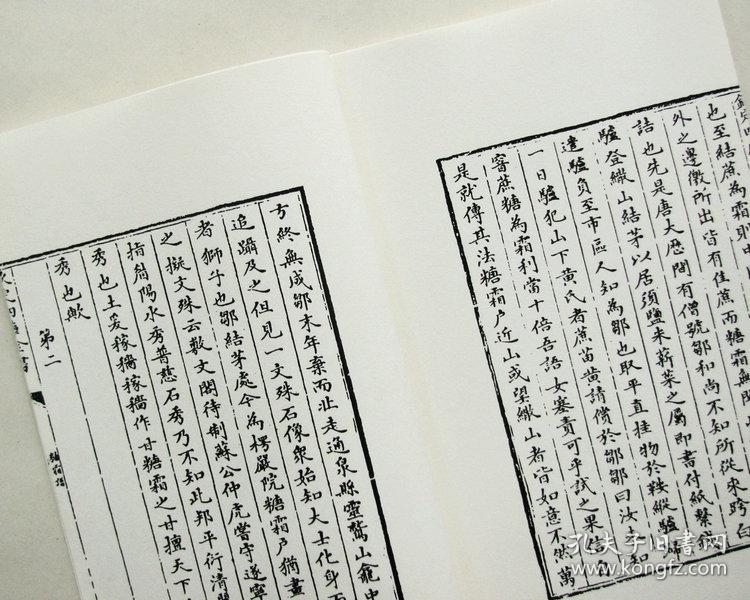 也至結蔗為霜則中
外之邊徼所出皆有佳蔗而糖霜無聞此
詰也先是唐大歷間有僧號鄒和尚不知所從來跨白
驢登繖山結茅以居須鹽米薪菜之屬即書付紙繫錢
遣驢負至市區人知為鄒也取平直挂物於鞍縱驢歸
一日驢犯山下黄氏者蔗苗黄請償於鄒鄒曰汝未知
窨蔗糖為霜利當十倍吾語女塞責可乎試之果信
是就傳其法糖霜户近山或望繖山者皆如意不然萬
方終無成鄒末年棄而北走通泉縣靈鷲山龕中
追躡及之但見一文殊石像衆始知大士化身而
者獅子也鄒結茅處今為楞嚴院糖霜户猶畫
之擬文殊云敷文閣待制蘇公仲虎嘗守遂寧
指簡陽水秀普慈石秀乃不知此邦平衍清
秀也土爰稼穡稼穡作甘糖霜之甘擅天下
秀也歟
第二
糖霜譜
孔夫子旧书网
www.kongfz.com